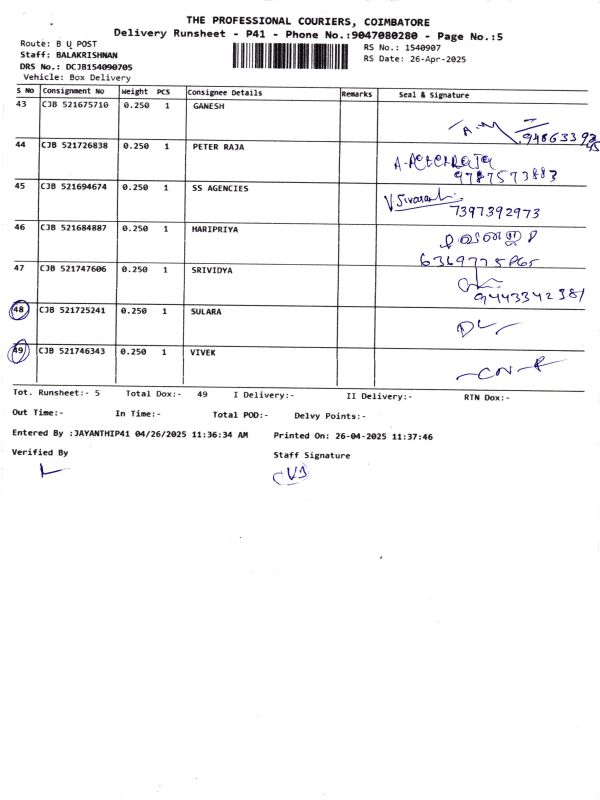 THE PROFESSIONAL COURIERS, COIMBATORE
Delivery Runsheet - P41 - Phone No.:9047080280 - Page No.:5
Route: B U POST
RS No.: 1540907
Staff: BALAKRISHNAN
RS Date: 26-Apr-2025
DRS No.: DCJB154090705
Vehicle: Box Delivery
S No Consignment No Weight PCS Consignee Details Remarks Seal & Signature
43 CJB 521675710 0.250 1 GANESH
44 CJB 521726838 0.250 1 PETER RAJA
A. Peter Raja
9787573883
45 CJB 521694674 0.250 1 SS AGENCIES
V. Sivasank
7397392973
46 CJB 521684887 0.250 1 HARIPRIYA
47 CJB 521747606 0.250 1 SRIVIDYA
9443342381
48 CJB 521725241 0.250 1 SULARA
49 CJB 521746343 0.250 1 VIVEK
Tot. Runsheet:- 5 Total Dox:- 49 I Delivery:- II Delivery:- RTN Dox:-
Out Time:- In Time:- Total POD:- Delvy Points:-
Entered By :JAYANTHIP41 04/26/2025 11:36:34 AM Printed On: 26-04-2025 11:37:46
Verified By Staff Signature